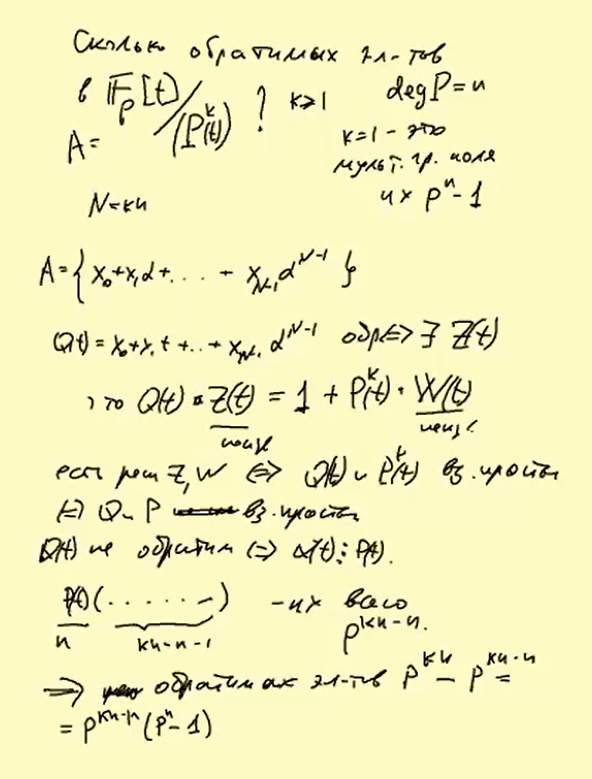 Сколько обратимых эл-тов
в F_p[t]/(P^k(t)) ? k≥1 deg P = n
A=
k=1 - это
мульт. гр. поля
N=kn их p^n - 1
A = { x_0 + x_1 α + . . . + x_{N-1} α^{N-1} }
Q(t) = x_0 + x_1 t + .. + x_{N-1} α^{N-1} обр <=> ∃ Z(t)
что Q(t) · Z(t) = 1 + P^k(t) · W(t)
неизв. неизв.
есть реш Z, W <=> Q(t) и P^k(t) вз. просты
<=> Q и P вз. просты
Q(t) не обратим <=> Q(t) ⋮ P(t).
P(t) ( . . . . . . ) - их всего
n kn-n-1 p^{kn-n}.
=> обратимых эл-тов p^{kn} - p^{kn-n} =
= p^{kn-n} (p^n - 1)